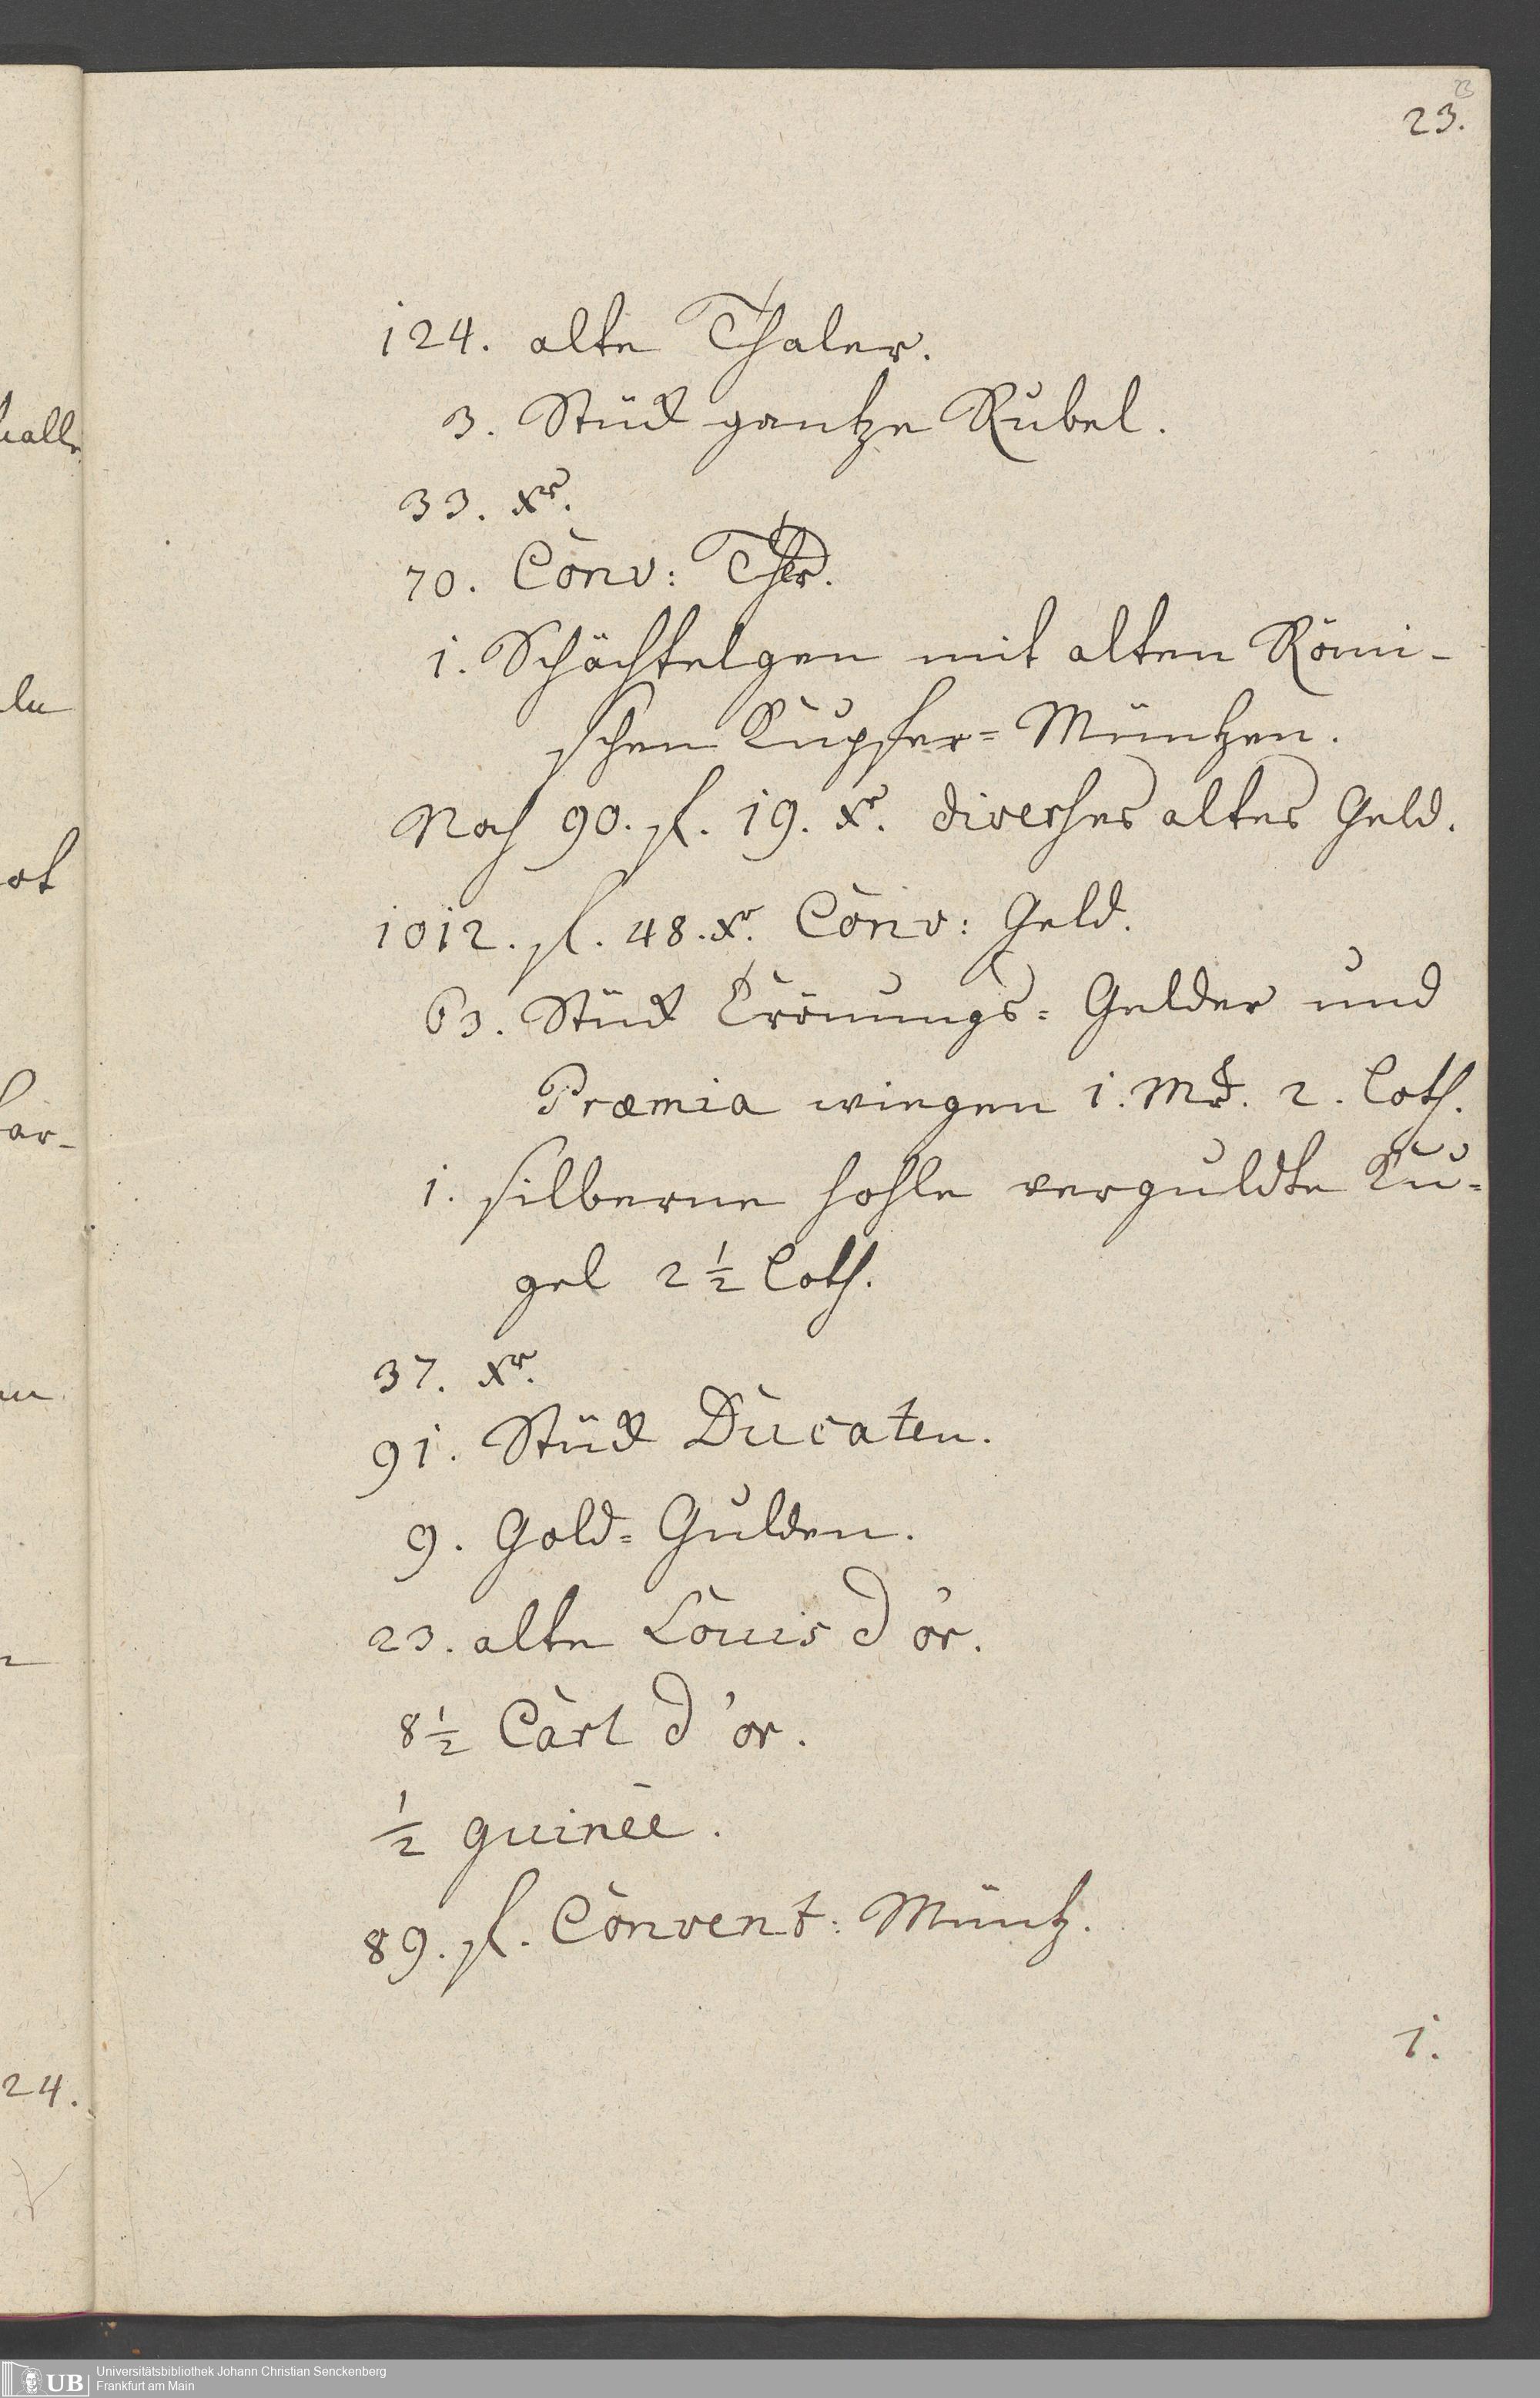 23
23.
124. alte Thaler.
3. Stück gantze Rubel.
33. xr.
70. Conv: Thlr.
1. Schächtelgen mit alten Römi-
schen Kupfer=Müntzen.
Noch 90. fl. 19. xr. diverses altes Geld.
1012. fl. 48. xr. Conv: Geld.
63. Stück Crönungs=Gelder und
Præmia wiegen 1. Mr. 2. Loth.
1. silberne hohle verguldte Ku=
gel 2 1/2 Loth.
37. xr.
91. Stück Ducaten.
9. Gold=Gulden.
23. alte Louis d'or.
8 1/2 Carl d'or.
1/2 guinée.
89. fl. Convent: Müntz.
1.
24.
UB Universitätsbibliothek Johann Christian Senckenberg
Frankfurt am Main